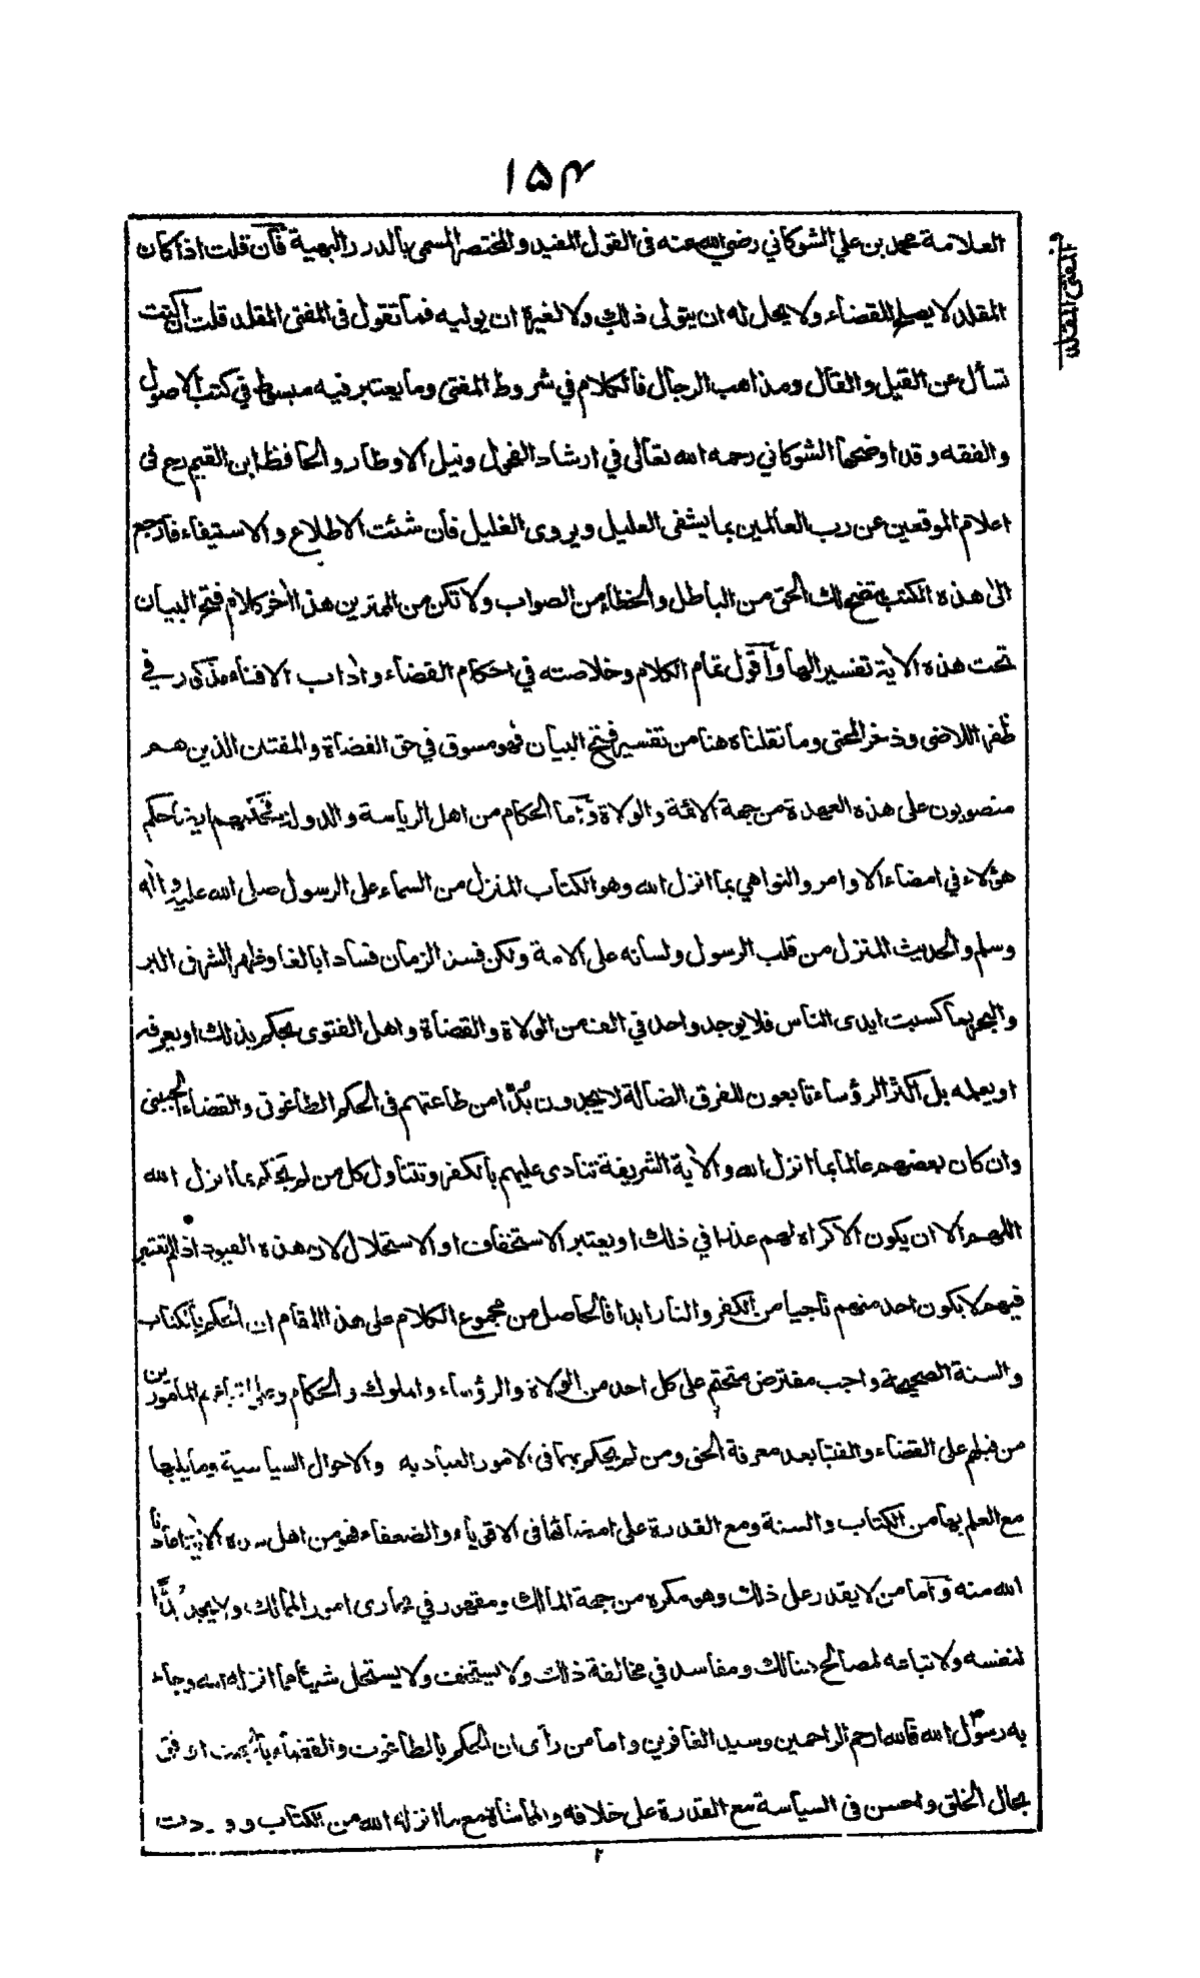 ١٥٤
العلامة محمد بن علي الشوكاني رضي الله عنه في القول المفيد والمختصر المسمى بالدرر البهية فان قلت اذا كان
المقلد لا يصلح للقضاء ولا يحل له ان يتولى ذلك ولا لغيره ان يوليه فما تقول في المفتي المقلد قلت ان كنت
تسأل عن القيل والقال ومذاهب الرجال فالكلام في شروط المفتي وما يعتبر فيه مبسوط في كتب الاصول
والفقه وقد اوضحها الشوكاني رحمه الله تعالى في ارشاد الفحول ونيل الاوطار والحافظ ابن القيم رح في
اعلام الموقعين عن رب العالمين بما يشفى العليل ويروى الغليل فان شئت الاطلاع والاستيفاء فارجع
الى هذه الكتب يتضح لك الحق من الباطل والخطاء من الصواب ولا تكن من الممترين هذا اٰخر كلام فتح البيان
تحت هذه الاٰية تفسيرا لها وآقول تمام الكلام وخلاصته في احكام القضاء واٰداب الافتاء مذكور في
ظفر اللاضى وذخر المحتى وما نقلناه هنا من تفسير فتح البيان فهو مسوق في حق القضاة والمفتيان الذين هم
منصوبون على هذه العهدة من جهة الائمة والولاة وآما الحكام من اهل الرياسة والدولة فحكمهم ايضا حكم
هؤلاء في امضاء الاوامر والنواهي بما انزل الله وهو الكتاب المنزل من السماء على الرسول صلى الله عليه واٰله
وسلم والحديث المنزل من قلب الرسول ولسانه على الامة ولكن فسد الزمان فسادا بالغا وظهر الشر في البر
والبحر بما كسبت ايدى الناس فلا يوجد واحد في الف من الولاة والقضاة واهل الفتوى يحكم بذلك او يعرفه
او يعلمه بل اكثر الرؤساء تابعون للفرق الضالة لا يجدون بُدًّا من طاعتهم في الحكم الطاغوتي والقضاء الجبتي
وان كان بعضهم عالما بما انزل الله والاٰية الشريفة تنادى عليهم بالكفر وتتناول كل من لم يحكم بما انزل الله
اللهم الا ان يكون الاكراه لهم عذرا في ذلك او يعتبر الاستخفاف او الاستحلال لان هذه القيود اذا لم تعتبر
فيهم لا يكون احد منهم ناجيا من الكفر والنار ابدا فالحاصل من مجموع الكلام على هذا المقام ان الحكم بالكتاب
والسنة الصحيحة واجب مفترض متحتم على كل احد من الولاة والرؤساء والملوك والحكام وعلى اتباعهم المأمورين
من قبلهم على القضاء والفتيا بعد معرفة الحق ومن لم يحكم بهما في الامور العباديه والاحوال السياسية وما يليها
مع العلم بها من الكتاب والسنة ومع القدرة على امضائها في الاقوياء والضعفاء فهو من اهل هذه الاٰية اعاذنا
الله منه وآما من لا يقدر على ذلك وهو مكره من جهة المالك ومقهور في مجارى امور الممالك ولا يجد بُدًّا
لنفسه ولاتباعه لمصالح هنالك ومفاسد في مخالفة ذلك ولا يستخف ولا يستحل شيئا مما انزله الله وجاء
به رسول الله فالله ارحم الراحمين وسيد الغافرين واما من رأى ان الحكم بالطاغوت والقضاء بالجبت اوفق
بحال الخلق واحسن في السياسة مع القدرة على خلافه والمماشاة مع ما انزله الله من الكتاب و